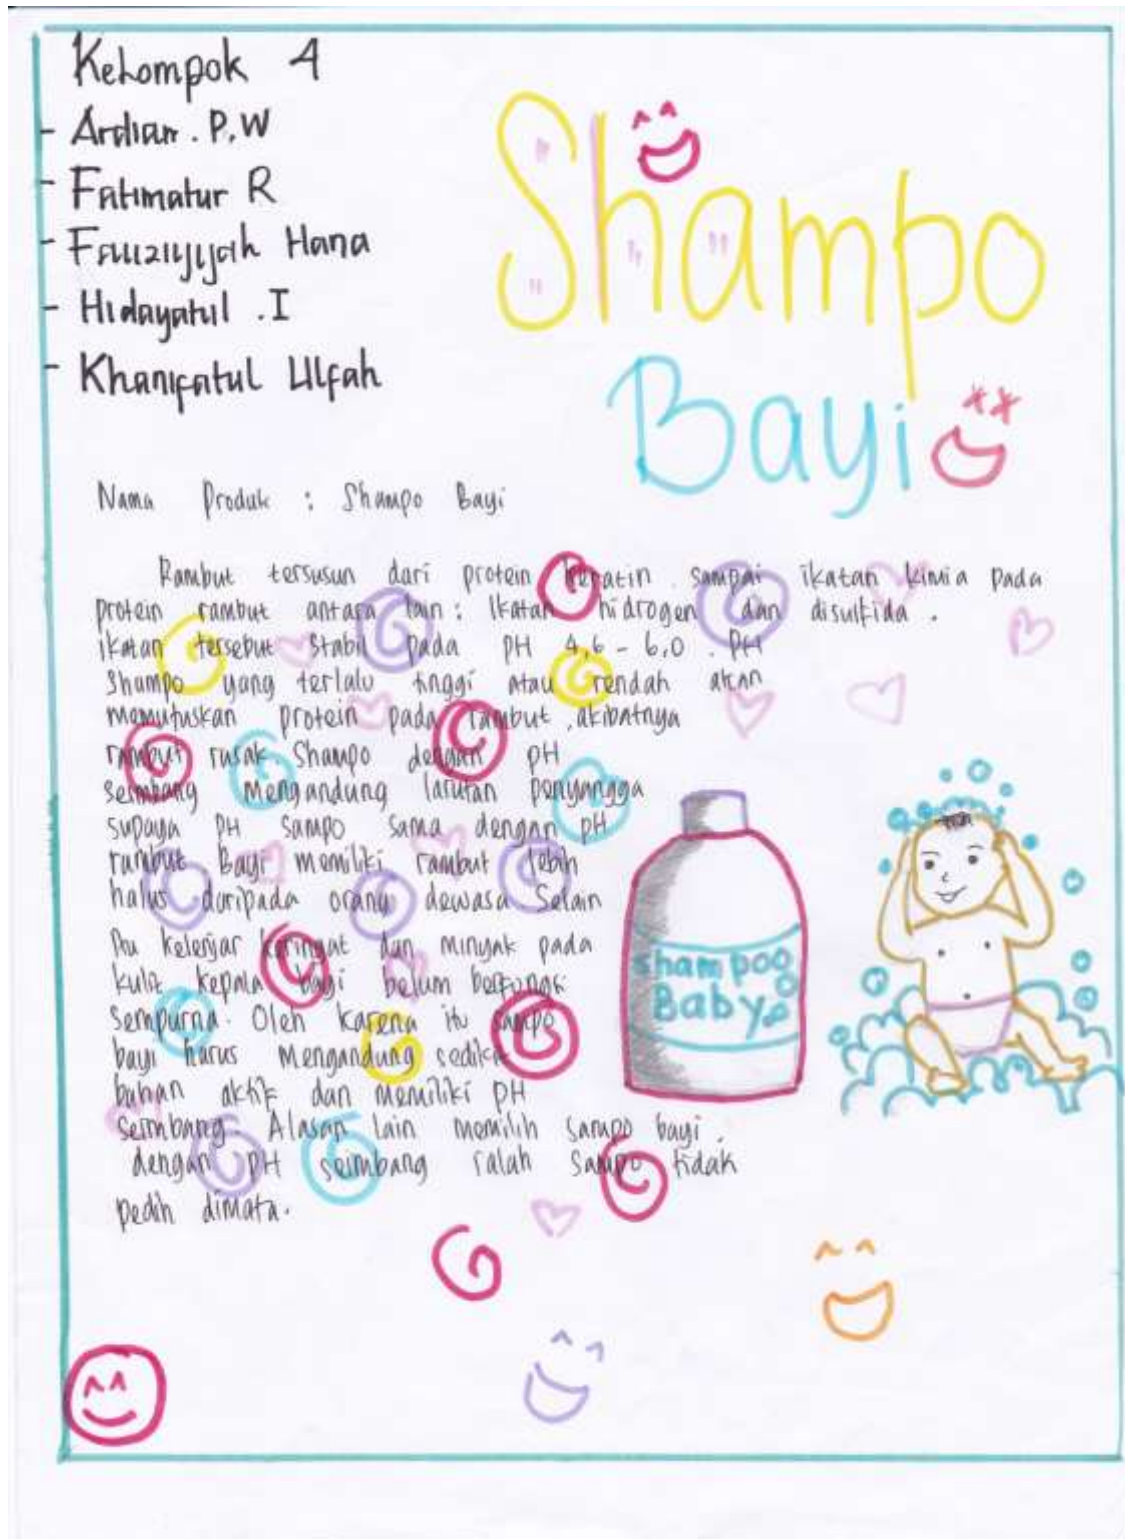 Kelompok 4
- Ardian . P.W
- Fatimatur R
- Fauziyyah Hana
- Hidayatul . I
- Khanifatul Ulfah
Shampo
Bayi
Nama Produk : Shampo Bayi
Rambut tersusun dari protein keratin . sampai ikatan kimia pada
protein rambut antara lain : Ikatan hidrogen dan disulfida .
ikatan tersebut stabil pada PH 4,6 - 6,0 . PH
Shampo yang terlalu tinggi atau rendah akan
memutuskan protein pada rambut , akibatnya
rambut rusak. Shampo dengan pH
seimbang mengandung larutan penyangga
supaya PH sampo sama dengan pH
rambut Bayi memiliki rambut lebih
halus daripada orang dewasa Selain
itu kelenjar keringat dan minyak pada
kulit kepala bayi belum berfungsi
sempurna. Oleh karena itu sampo
bayi harus mengandung sedikit
bahan aktif dan memiliki pH
seimbang. Alasan lain memilih sampo bayi .
dengan pH seimbang ialah sampo tidak
pedih dimata.
shampoo
Baby